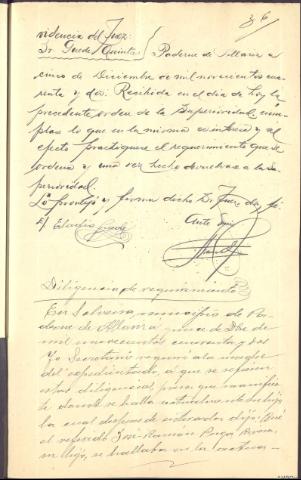 36
videncia del Juez
Sr Quinta Paderne de Allariz a
cinco de Diciembre de mil novecientos cua-
renta y dos. Recibida en el dia de hoy la
precedente orden de la Superioridad, cum-
plase lo que en la misma se interesa y al
efecto practiquese el requerimiento que se
ordena y una vez hecho devuelvase a la Su-
perioridad.
Lo proveyó y firma dicho Sr Juez doy fé
Ante mi
Diligencia de requerimiento
En Solveira, municipio de Pa-
derne de Allariz a de Dbre de
mil novecientos cuarenta y dos
Yo Secretario requerí a la
del expedientado, a que se refieren
estas diligencias, para que manifies-
te donde se halla su hijo
la cual despues de enterada dijo: Que
el referido José Ramón
su hijo, se hallaba en la